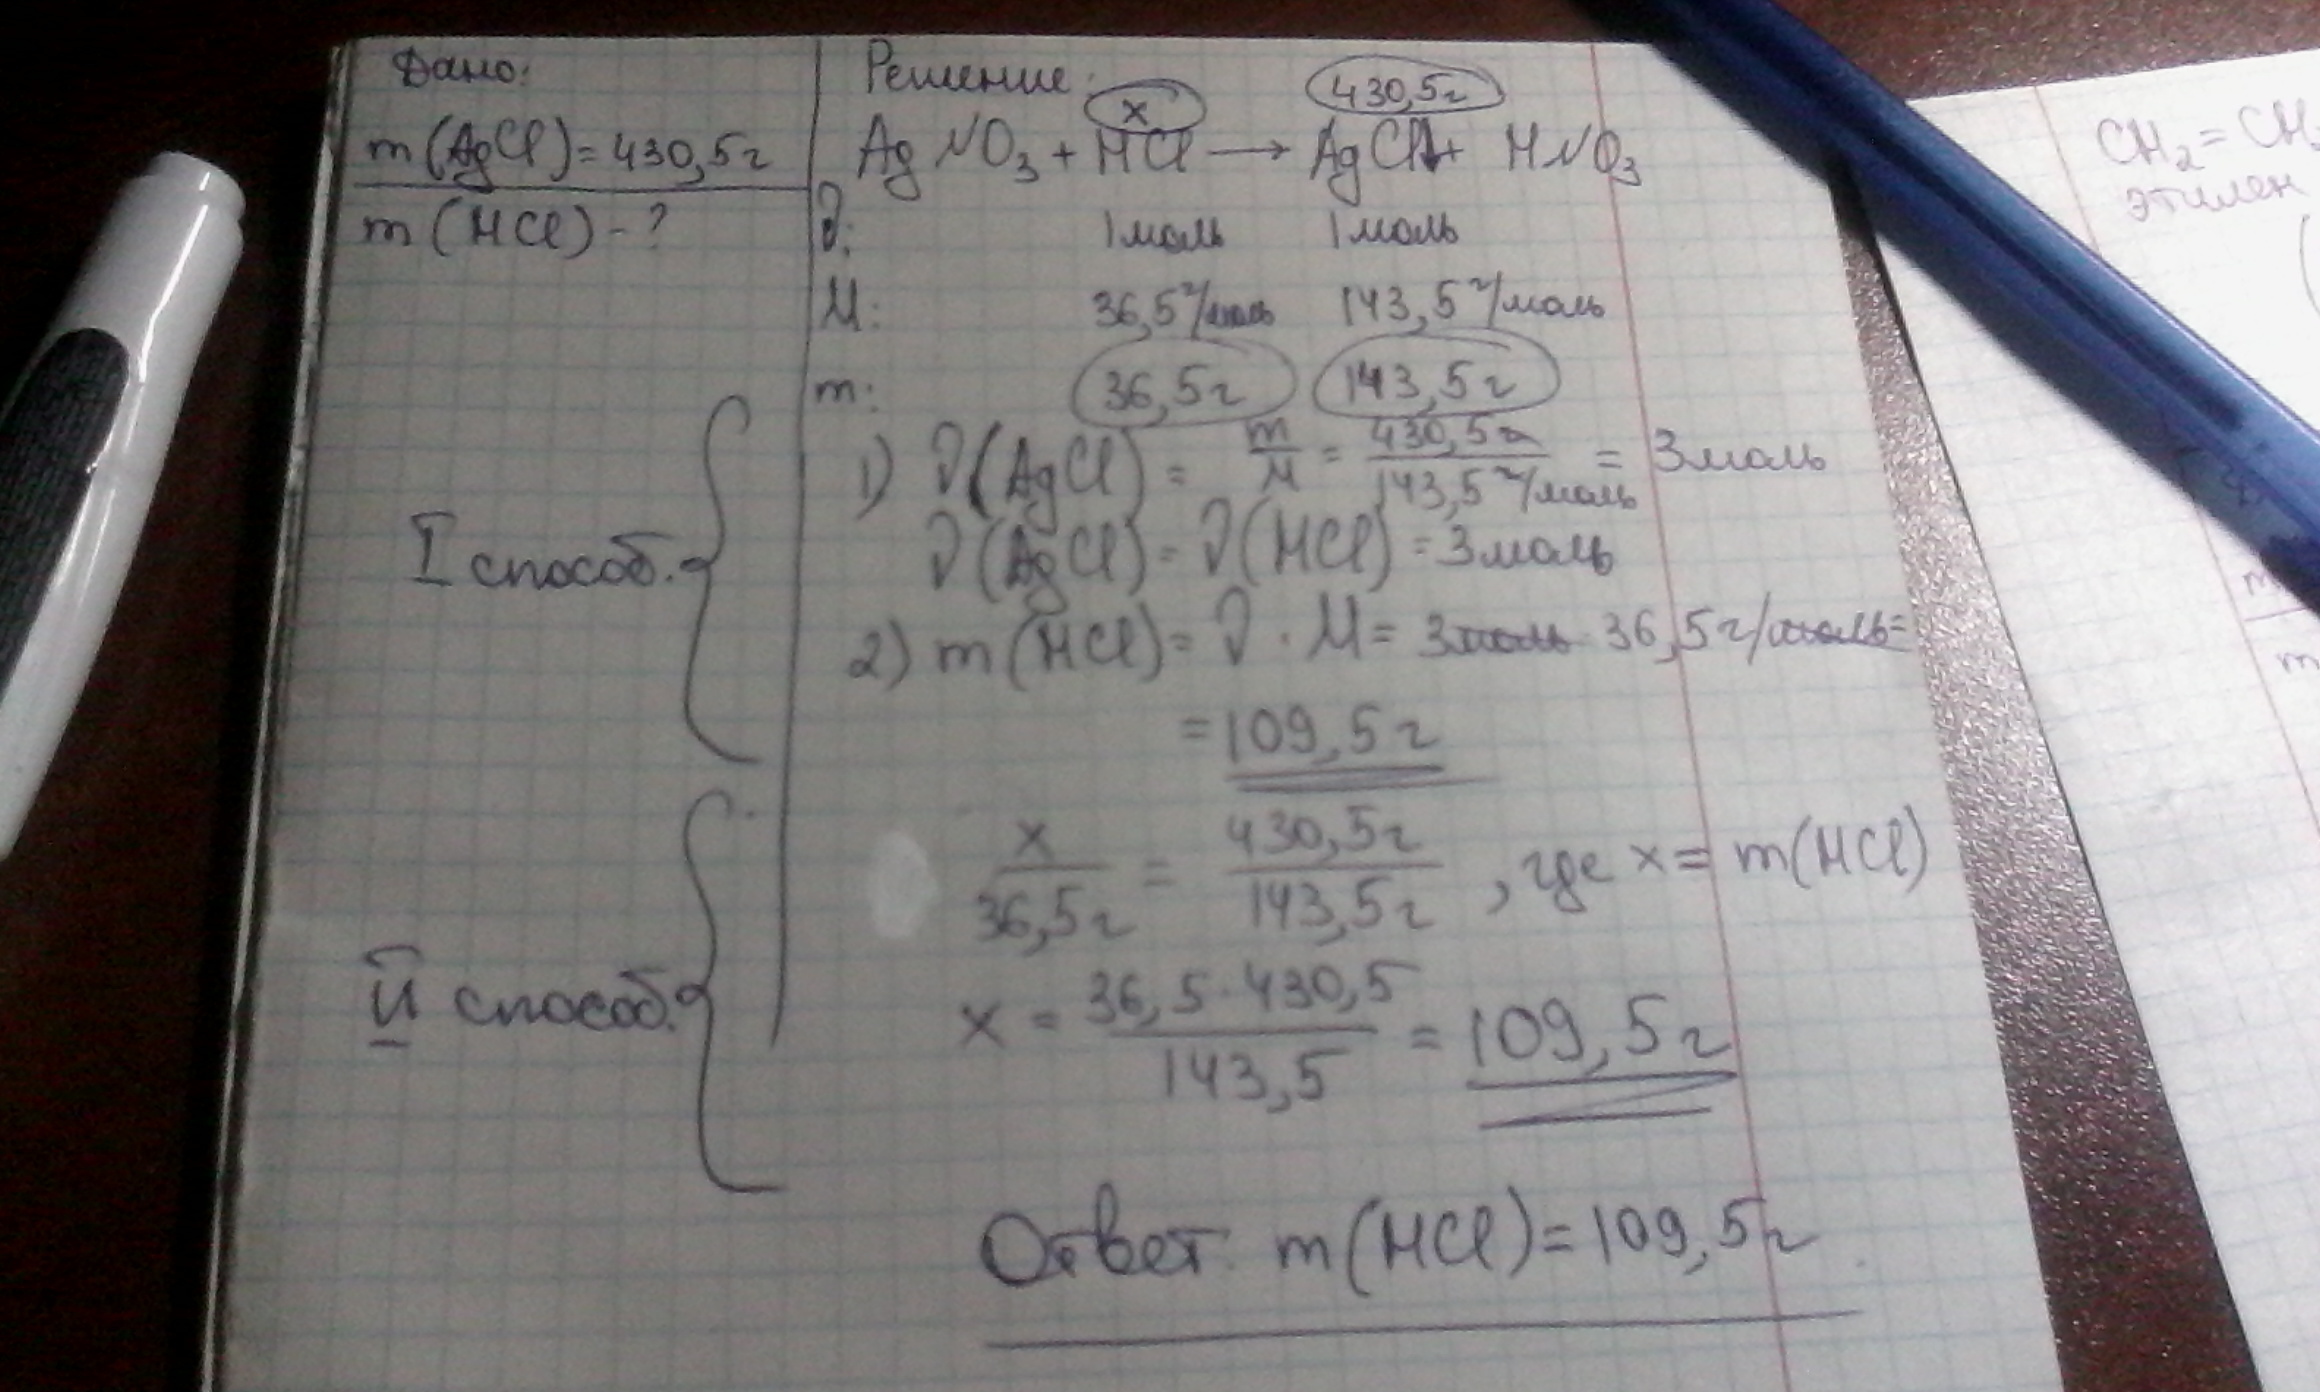 Дано:
m(AgCl)=430,5г
m(HCl)-?
Решение:
x 430,5г
AgNO3 + HCl → AgCl↓+ HNO3
ν: 1моль 1моль
M: 36,5г/моль 143,5г/моль
m: 36,5г 143,5г
I способ.
1) ν(AgCl) = m/M = 430,5г/143,5г/моль = 3моль
ν(AgCl) = ν(HCl) = 3моль
2) m(HCl) = ν · M = 3моль · 36,5г/моль =
= 109,5г
II способ.
x/36,5г = 430,5г/143,5г , где x = m(HCl)
x = 36,5·430,5/143,5 = 109,5г
Ответ: m(HCl)=109,5г.
CH2=CH
этилен
m
m